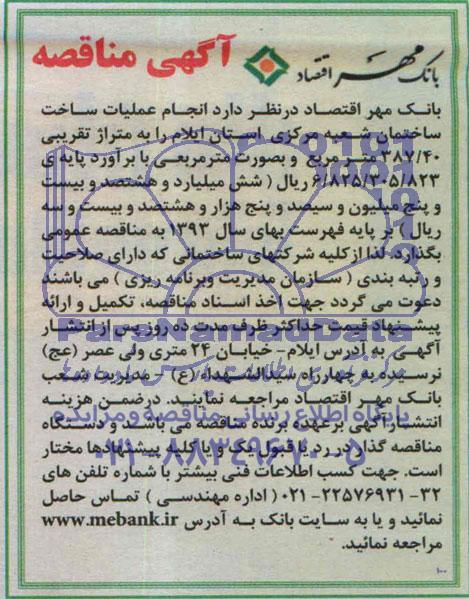 آگهی مناقصه
بانک مهر اقتصاد
بانک مهر اقتصاد درنظر دارد انجام عملیات ساخت
ساختمان شعبه مرکزی استان ایلام را به متراژ تقریبی
۳۸۷/۴۰ متر مربع و بصورت مترمربعی با برآورد پایه ی
۶/۸۲۵/۳۰۵/۸۲۳ ریال ( شش میلیارد و هشتصد و بیست
و پنج میلیون و سیصد و پنج هزار و هشتصد و بیست و سه
ریال ) بر پایه فهرست بهای سال ۱۳۹۳ به مناقصه عمومی
بگذارد. لذا ازکلیه شرکتهای ساختمانی که دارای صلاحیت
و رتبه بندی ( سازمان مدیریت وبرنامه ریزی ) می باشند
دعوت می گردد جهت اخذ اسناد مناقصه، تکمیل و ارائه
پیشنهاد قیمت حداکثر ظرف مدت ده روز پس از انتشار
آگهی به آدرس ایلام- خیابان ۲۴ متری ولی عصر (عج)
نرسیده به چهارراه سیدالشهداء (ع) - مدیریت شعب
بانک مهر اقتصاد مراجعه نمایند. درضمن هزینه
انتشار آگهی برعهده برنده مناقصه می باشد و دستگاه
مناقصه گذار در رد یا قبول یک و یا کلیه پیشنهادها مختار
است. جهت کسب اطلاعات فنی بیشتر با شماره تلفن های
۳۲- ۲۲۵۷۶۹۳۱-۰۲۱ ( اداره مهندسی ) تماس حاصل
نمائید و یا به سایت بانک به آدرس www.mebank.ir
مراجعه نمائید.
۱۰۰
ParsNamadData
پایگاه اطلاع رسانی مناقصه و مزایده
۰۲۱-۸۸۳۴۹۶۷۰-۵